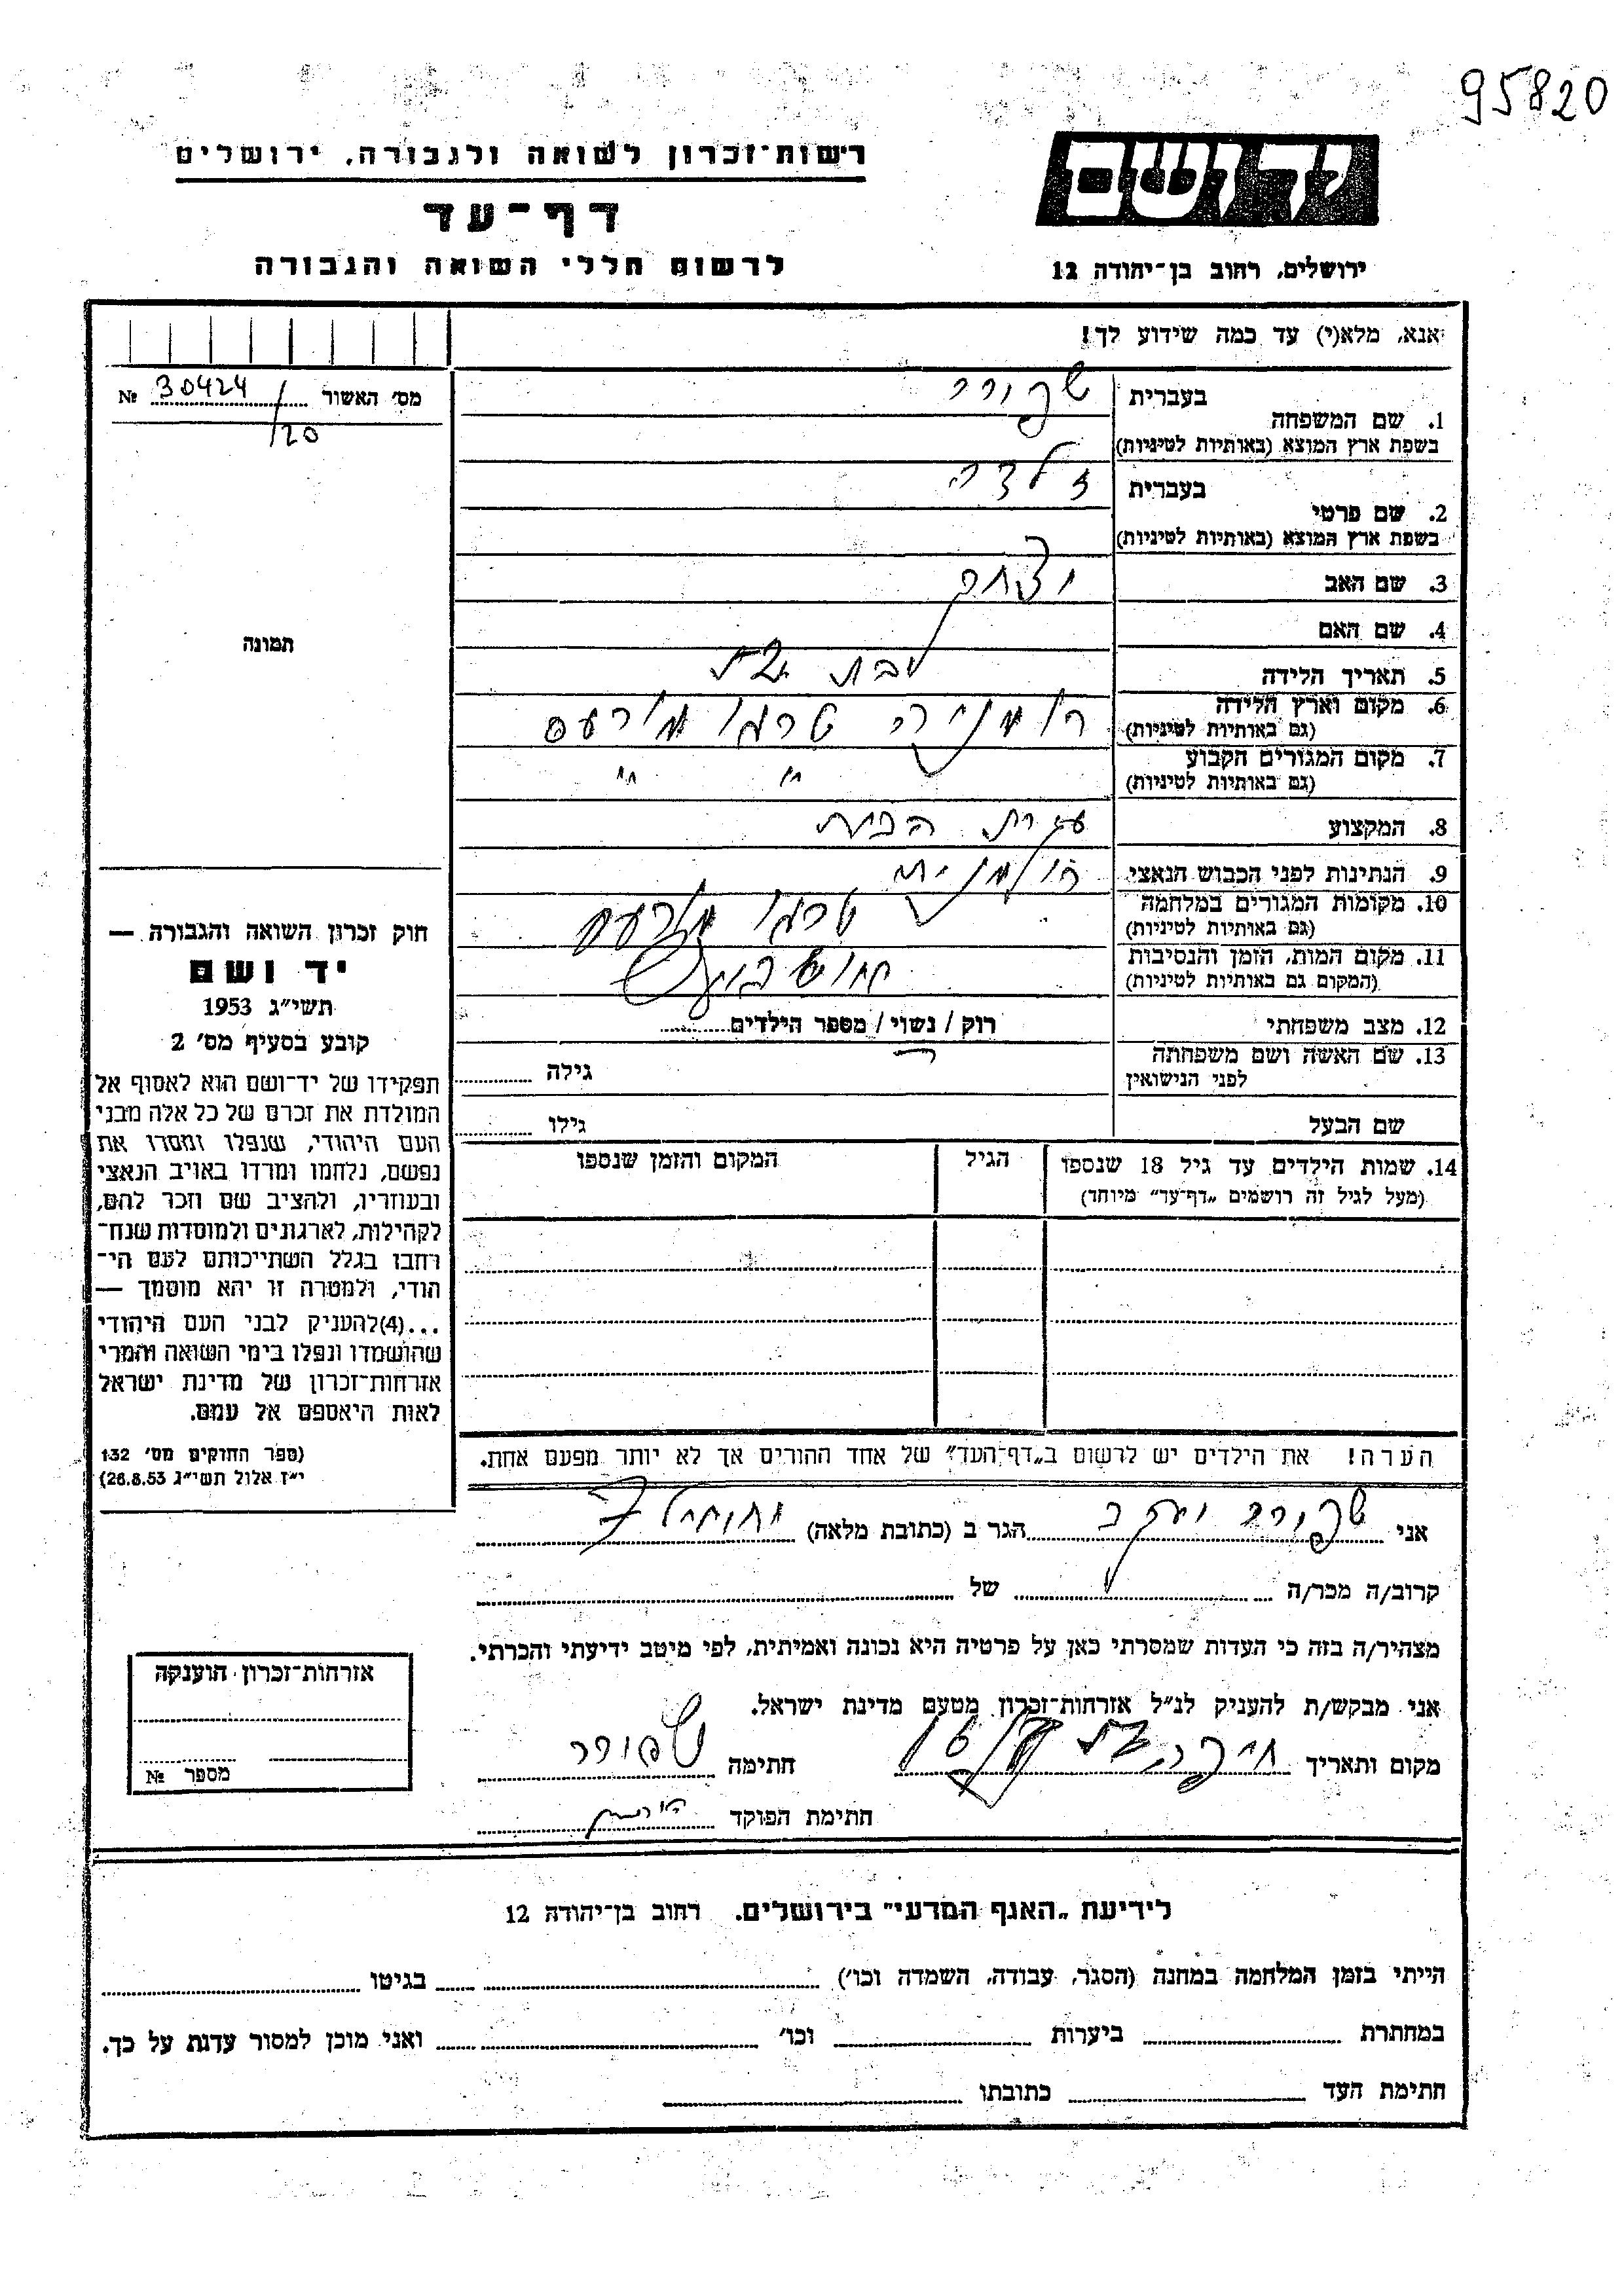 95820
יד ושם
רשות-זכרון לשואה ולגבורה, ירושלים
דף-עד
לרשום חללי השואה והגבורה
ירושלים, רחוב בן-יהודה 12
אנא, מלא(י) עד כמה שידוע לך!
מס׳ האשור № 30424/20
תמונה
1. שם המשפחה
בעברית
בשפת ארץ המוצא (באותיות לטיניות)
2. שם פרטי
בעברית זלדה
בשפת ארץ המוצא (באותיות לטיניות)
3. שם האב יצחק
4. שם האם
5. תאריך הלידה
6. מקום וארץ הלידה רומניה טרגו מורעס
(גם באותיות לטיניות)
7. מקום המגורים הקבוע " "
(גם באותיות לטיניות)
8. המקצוע עקרת הבית
9. הנתינות לפני הכבוש הנאצי רומנית
10. מקומות המגורים במלחמה טרגו מורעס
(גם באותיות לטיניות)
11. מקום המות, הזמן והנסיבות אושביץ
(המקום גם באותיות לטיניות)
12. מצב משפחתי רוק / נשוי / מספר הילדים
13. שם האשה ושם משפחתה
לפני הנישואין
גילה
שם הבעל גילו
14. שמות הילדים עד גיל 18 שנספו
(מעל לגיל זה רושמים „דף-עד״ מיוחד)
הגיל
המקום והזמן שנספו
הערה! את הילדים יש לרשום ב„דף-העד״ של אחד ההורים אך לא יותר מפעם אחת.
חוק זכרון השואה והגבורה —
יד ושם
תשי״ג 1953
קובע בסעיף מס׳ 2
תפקידו של יד-ושם הוא לאסוף אל
המולדת את זכרם של כל אלה מבני
העם היהודי, שנפלו ומסרו את
נפשם, נלחמו ומרדו באויב הנאצי
ובעוזריו, ולהציב שם וזכר להם,
לקהילות, לארגונים ולמוסדות שנח-
רחבו בגלל השתייכותם לעם הי-
הודי, ולמטרה זו יהא מוסמך —
...(4)להעניק לבני העם היהודי
שהושמדו ונפלו בימי השואה והמרי
אזרחות-זכרון של מדינת ישראל
לאות היאספם אל עמם.
(ספר החוקים מס׳ 132
י״ז אלול תשי״ג 26.8.53)
אני יעקב הגר ב (כתובת מלאה)
קרוב/ה מכר/ה של
מצהיר/ה בזה כי העדות שמסרתי כאן על פרטיה היא נכונה ואמיתית, לפי מיטב ידיעתי והכרתי.
אני מבקש/ת להעניק לנ״ל אזרחות-זכרון מטעם מדינת ישראל.
מקום ותאריך חיפה חתימה
חתימת הפוקד
אזרחות-זכרון הוענקה
מספר №
לידיעת „האגף המדעי״ בירושלים. רחוב בן-יהודה 12
הייתי בזמן המלחמה במחנה (הסגר, עבודה, השמדה וכו׳) בגיטו
במחתרת ביערות וכו׳ ואני מוכן למסור עדות על כך.
חתימת העד כתובתו